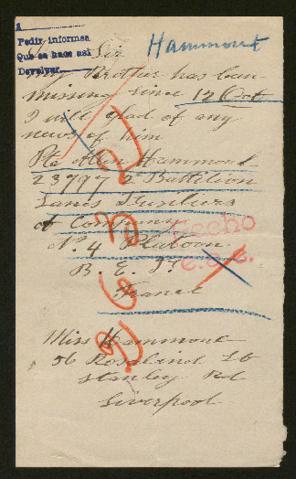 A
Pedir informes
Que se haca asi
Devolver.
Hammont
Sir
My Brother has been
missing since 12 Oct
I will glad of any
news of him
Pte Allen Hammond
23797 2 Battilion
Lancs Fusiliers
A Company
No. 4 Platoon
B. E. F
France
Hecho
Miss Hammond
56 Rosalind St
Stanley Rd
Liverpool